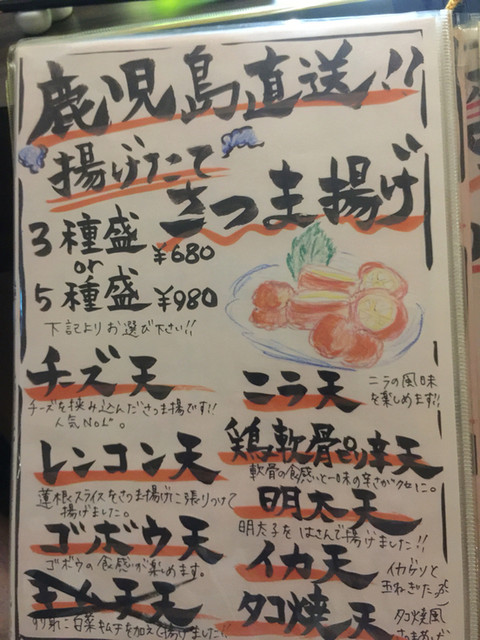 鹿児島直送!!
揚げたて
さつま揚げ
3種盛 ¥680
or
5種盛 ¥980
下記よりお選び下さい!!
チーズ天
チーズを挟み込んださつま揚です!!
人気No.1。
レンコン天
蓮根スライスをさつま揚げに張りつけて
揚げました。
ゴボウ天
ゴボウの食感が楽しめます。
キムチ天
すり身に白菜キムチを加えて揚げました!!
ニラ天
ニラの風味
を楽しめます!!
鶏軟骨ピリ辛天
軟骨の食感と一味の辛さがクセに。
明太天
明太子をはさんで揚げました!!
イカ天
イカゲソと
玉ねぎたっぷ
タコ焼天
タコ焼風